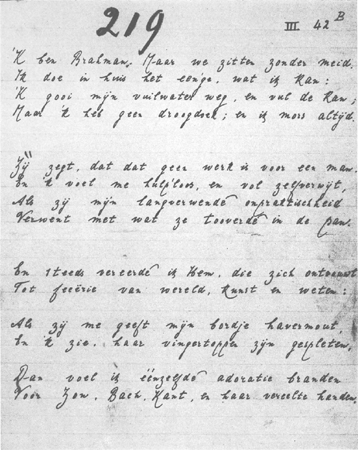 219
III 42 B
'K ben Brahman. Maar we zitten zonder meid.
Ik doe in huis het eenge, wat ik kan:
'K gooi mijn vuilwater weg, en vul de kan;
Maar 'k heb geen droogdoek; en ik mors altijd.
Zij zegt, dat dat geen werk is voor een man.
En 'k voel me hulploos, en vol zelfverwijt,
Als zij mijn langverwende onpraktischheid
Verwent met wat ze tooverde in de pan.
En steeds vereerde ik Hem, die zich ontvouwt
Tot feeërie van wereld, kunst en weten:
Als zij me geeft mijn bordje havermout,
En 'k zie, haar vingertoppen zijn gespleten,
Dan voel ik éénzelfde adoratie branden
Voor Zon, Bach, Kant, en haar vereelte handen.